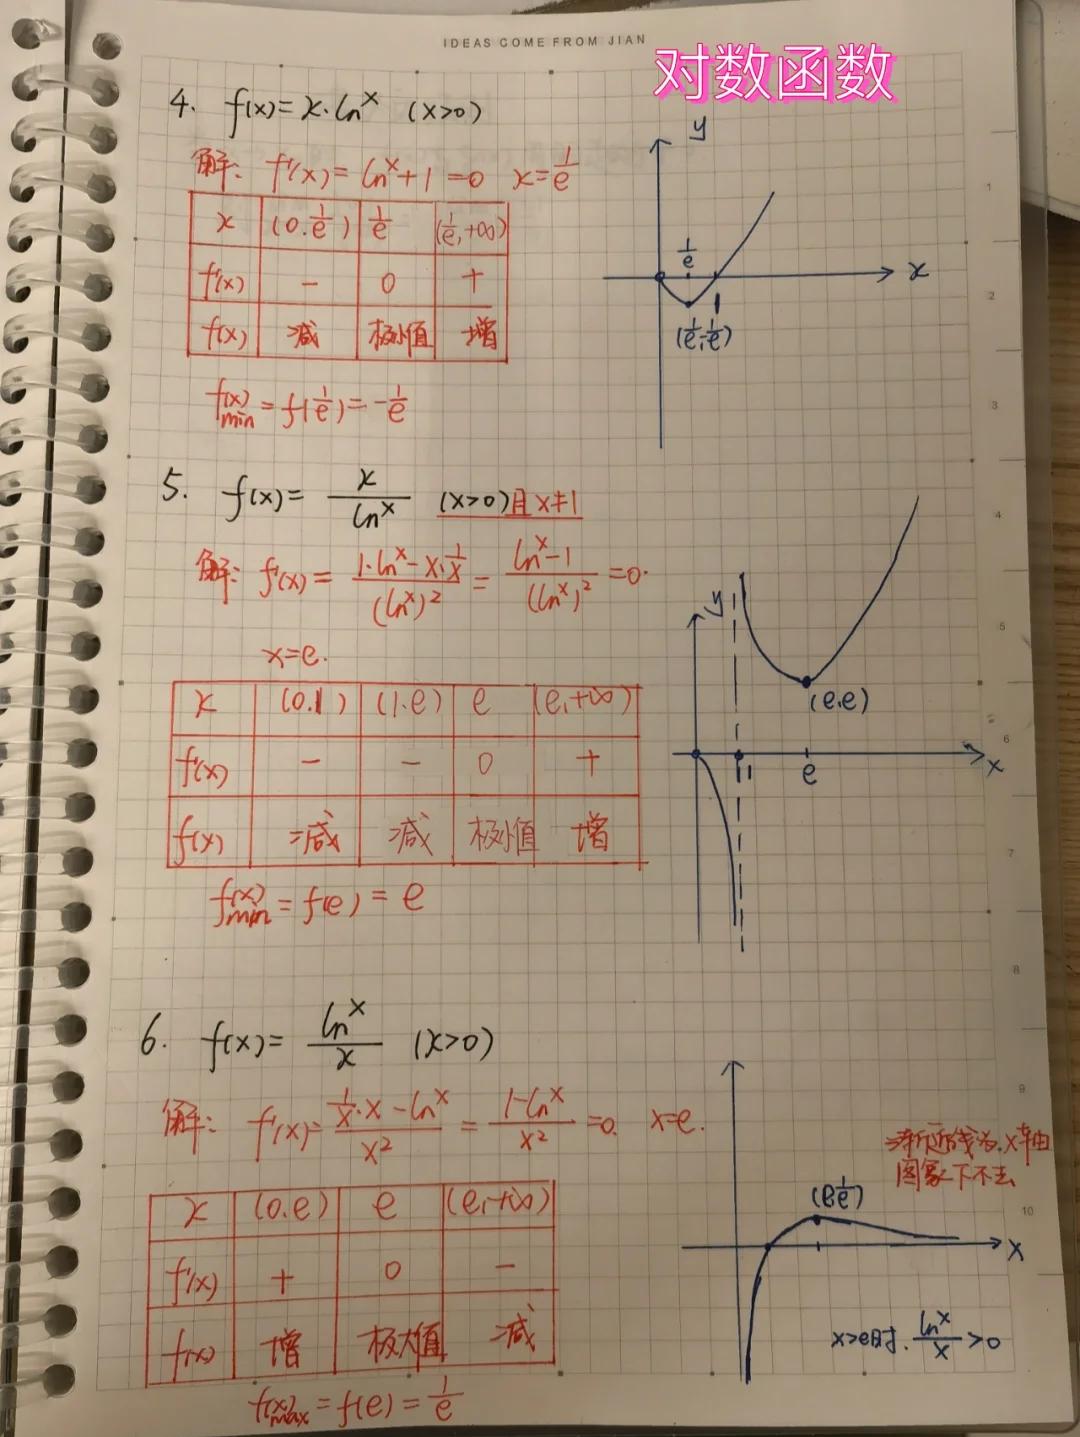 IDEAS COME FROM JIAN
对数函数
4. f(x)=x·ln^x (x>0)
解: f'(x)=ln^x+1=0 x=1/e
x (0.1/e) 1/e (1/e,+∞)
f'(x) - 0 +
f(x) 减 极小值 增
f(x)min=f(1/e)=-1/e
y
1/e
x
1
(1/e,-1/e)
5. f(x)=x/ln^x (x>0)且x≠1
解: f'(x)=(1·ln^x-x·1/x)/(ln^x)^2=(ln^x-1)/(ln^x)^2=0.
x=e.
x (0.1) (1.e) e (e,+∞)
f'(x) - - 0 +
f(x) 减 减 极小值 增
f(x)min=f(e)=e
y
(e.e)
1 e x
6. f(x)=ln^x/x (x>0)
解: f'(x)=(1/x·x-ln^x)/x^2=(1-ln^x)/x^2=0. x=e.
x (0.e) e (e,+∞)
f'(x) + 0 -
f(x) 增 极大值 减
f(x)max=f(e)=1/e
渐近线为x轴
图象下不去
(e,1/e)
x
x>e时. ln^x/x>0
1
2
3
4
5
6
7
8
9
10